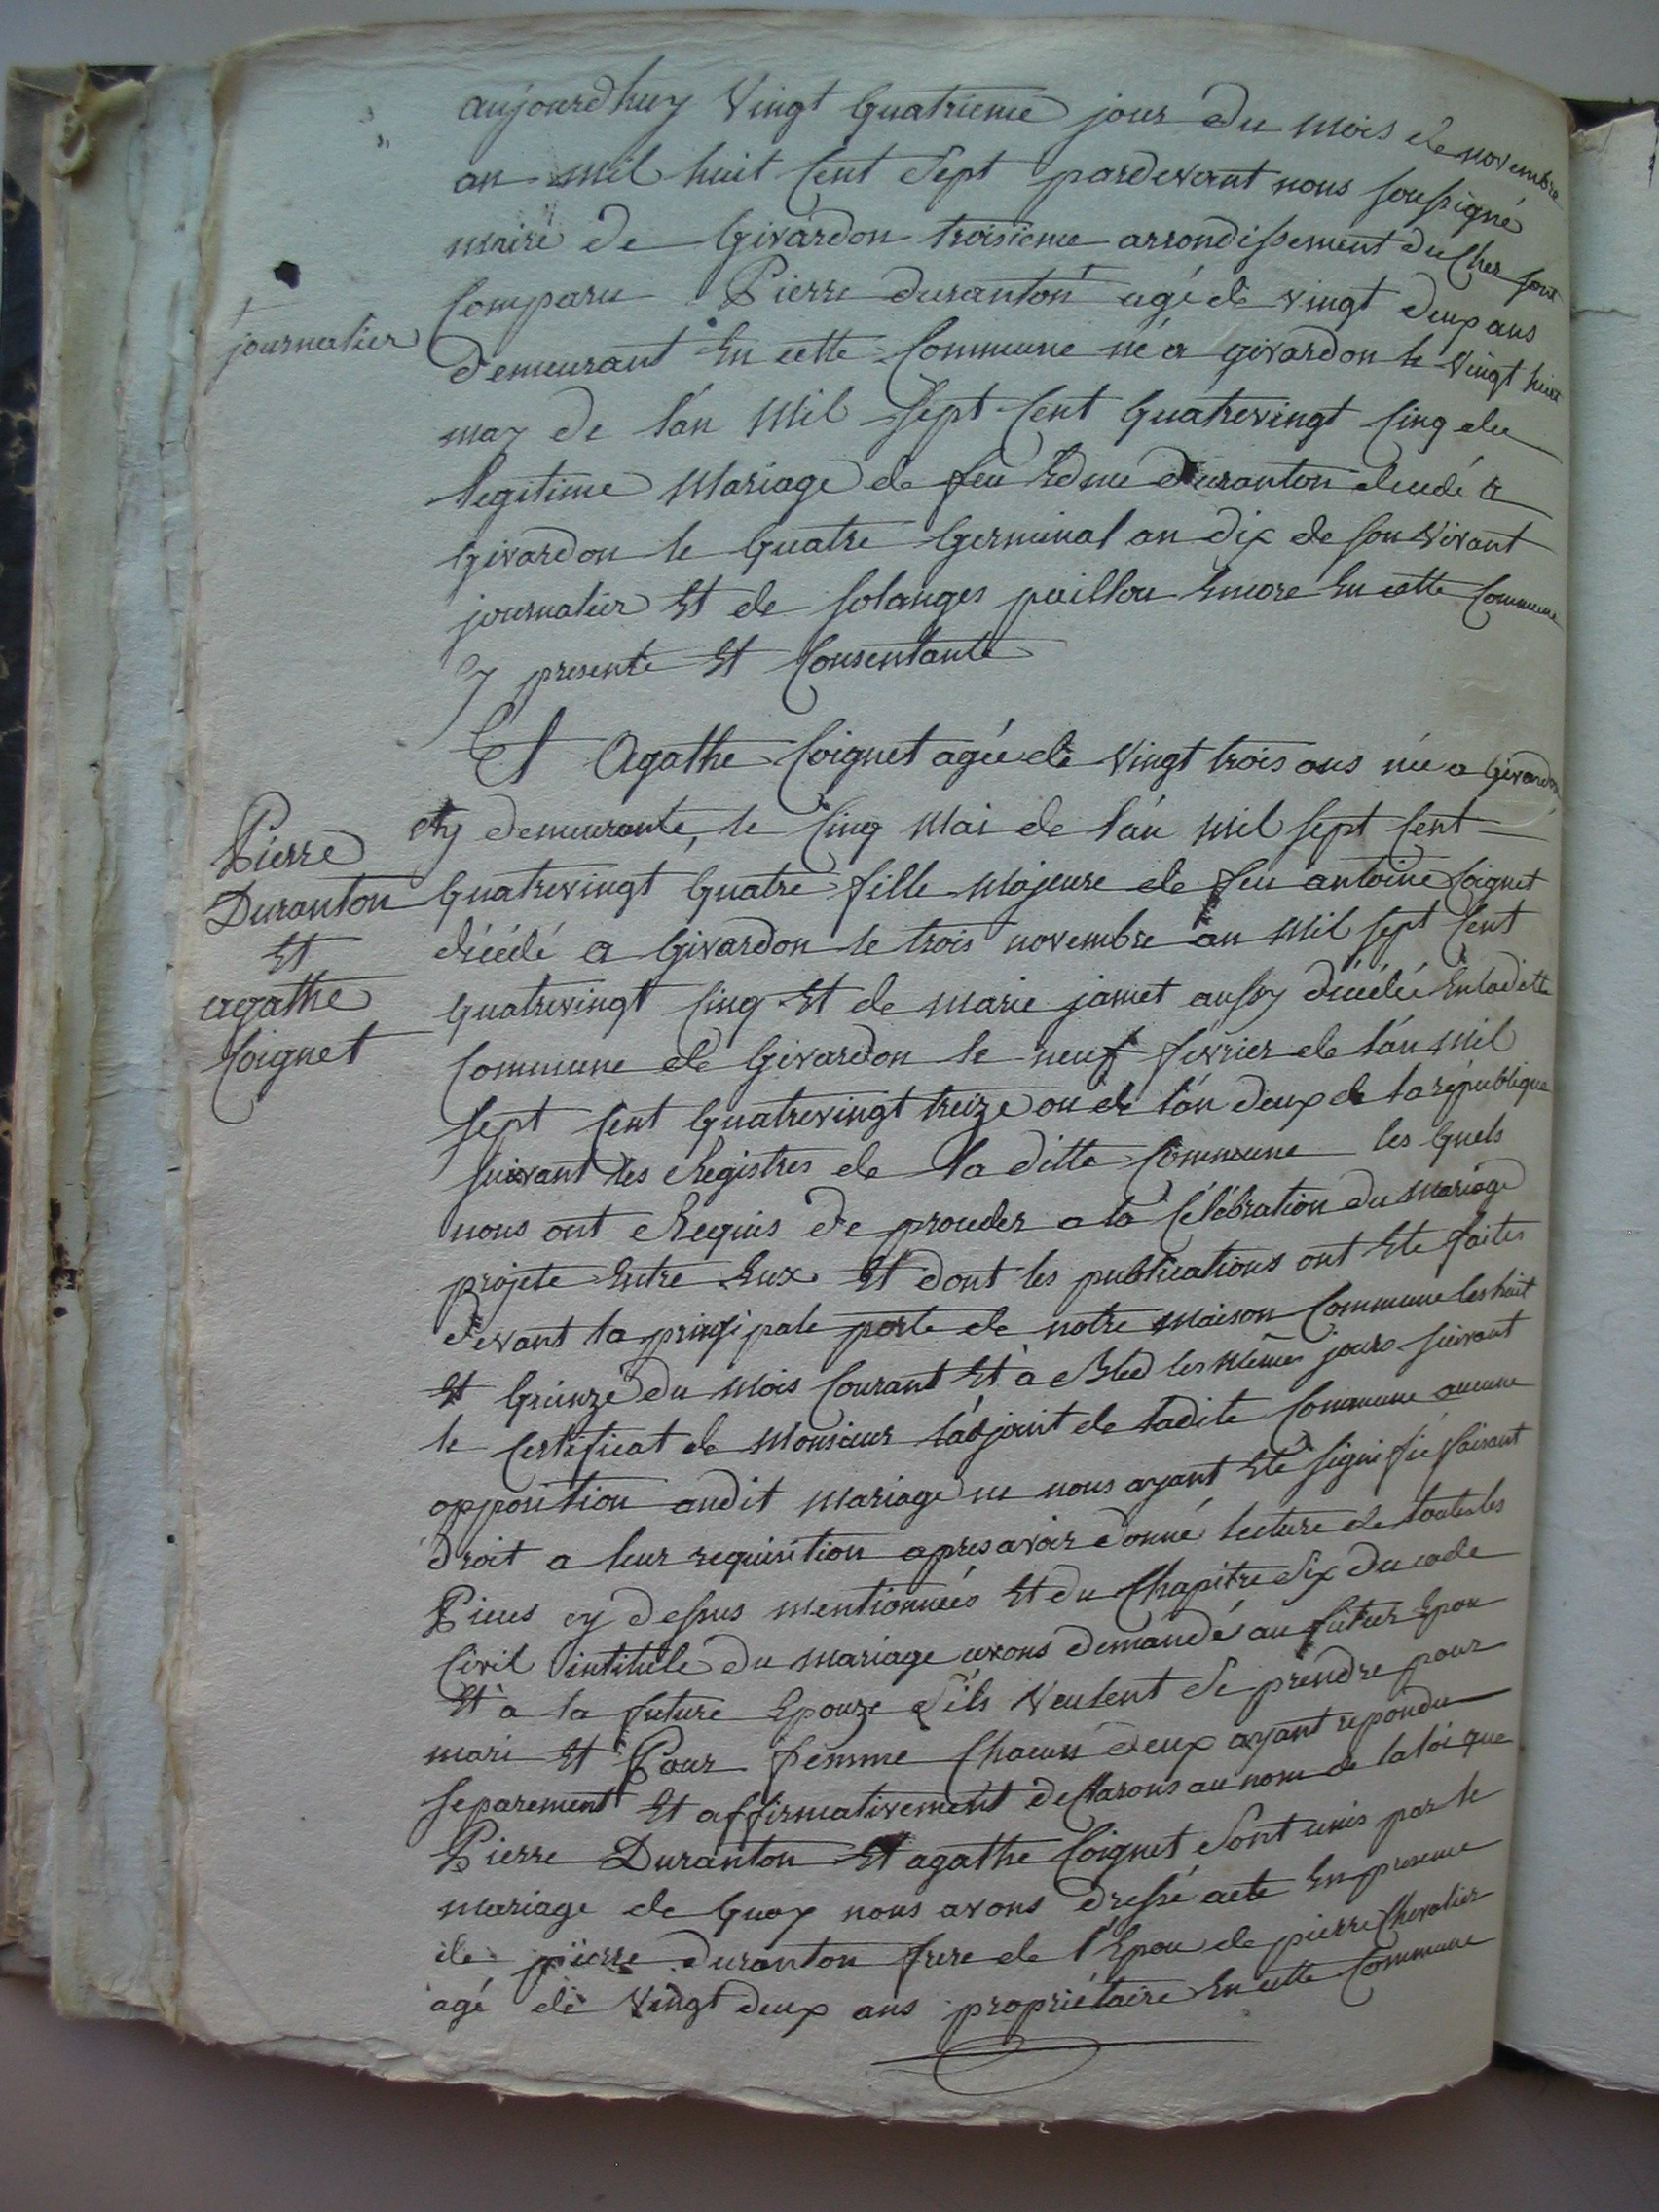 aujourdhuy Vingt Quatrieme jour du mois de novembre
an mil huit Cent Sept pardevant nous soussigné
maire de Givardon troisieme arrondissement du Cher sont
Comparu Pierre duranton agé de vingt deux ans
journalier
demeurant En cette Commune né a givardon le Vingt huit
may de l'an Mil Sept Cent Quatrevingt Cinq du
legitime Mariage de feu Edme duranton decedé a
Givardon le Quatre Germinal an dix de son Vivant
journalier Et de Solanges paillou Encore En cette Commune
y presente Et Consentante
Et Agathe Coignet agée de Vingt trois ans née a Givardon
Pierre
Duranton
Et
agathe
Coignet
Ety demeurante, le Cinq Mai de l'an Mil Sept Cent
Quatrevingt Quatre fille Majeure de feu antoine Coignet
décédé a Givardon le trois novembre an Mil Sept Cent
Quatrevingt Cinq Et de marie jamet aussy décédée En ladite
Commune de Givardon le neuf fevrier de l'an Mil
Sept Cent Quatrevingt treize ou de l'an deux de la république
suivant les Registres de la ditte Commune les Quels
nous ont Requis de proceder a la Célébration du Mariage
projeté Entre Eux Et dont les publications ont Eté faites
devant la principale porte de notre Maison Commune les huit
Et Quinze du Mois Courant Et à Bled les Mêmes jours suivant
le Certificat de Monsieur l'adjoint de ladite Commune aucune
opposition audit Mariage ne nous ayant Eté signifié faisant
droit a leur requisition apres avoir donné lecture de toutes les
Pieces cy dessus mentionnées Et du Chapitre Six du code
Civil intitulé du mariage avons demandé au futur Epou
Et à la future Epouze S'ils Veulent Se prendre pour
mari Et Pour femme Chacun d'eux ayant repondu
separement Et affirmativement declarons au nom de la loi que
Pierre Duranton Et agathe Coignet Sont unis par le
mariage de Quoy nous avons dressé acte En presence
de pierre duranton frere de l'Epou de pierre Chevalier
agé de Vingt deux ans propriétaire En cette Commune